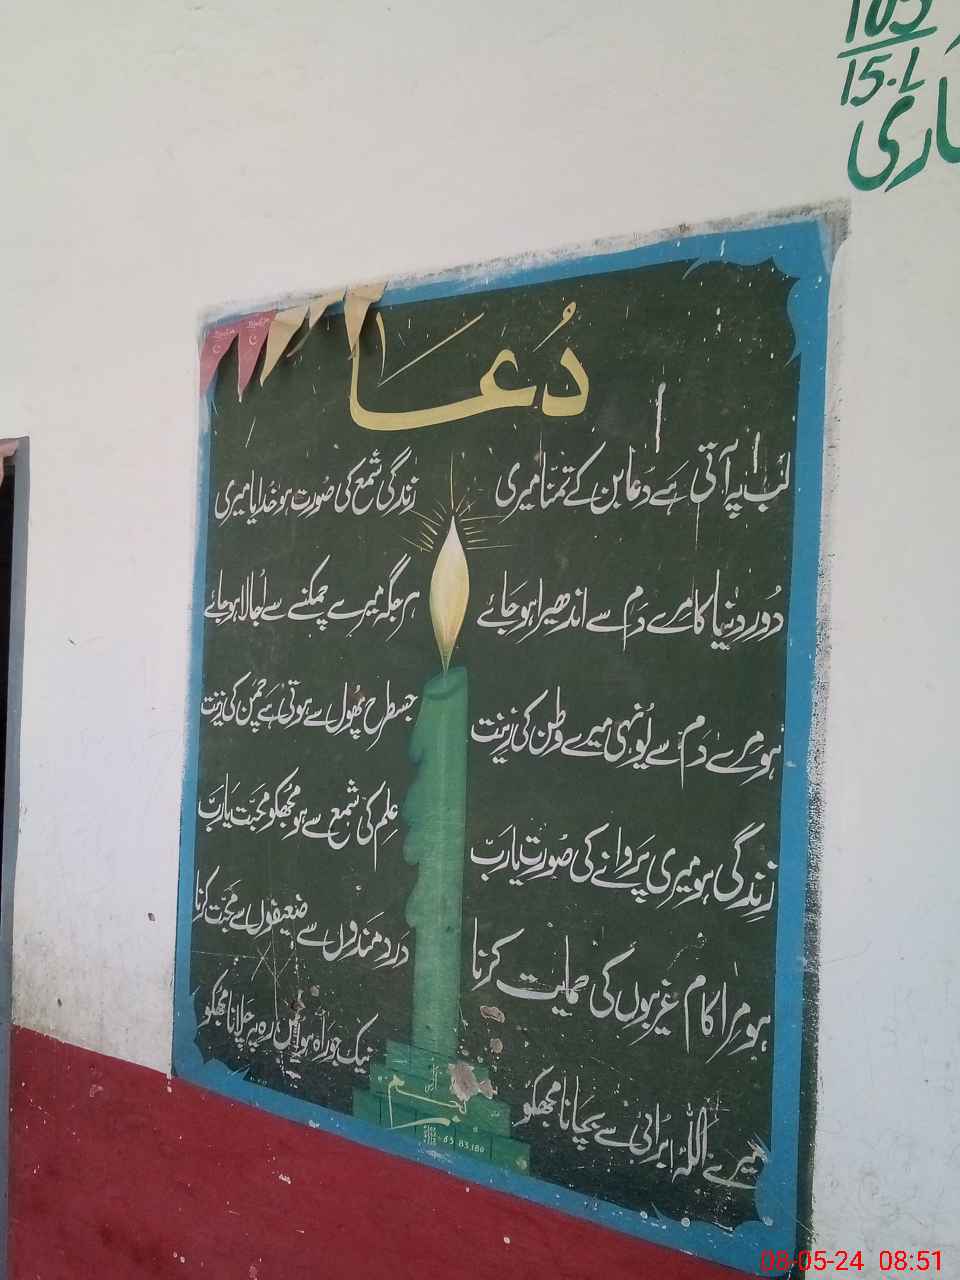 105
15.L
دُعا
لب پہ آتی ہے دُعا بن کے تمنّا میری
زندگی شمع کی صُورت ہو خُدایا میری
دُور دنیا کا مرے دَم سے اندھیرا ہو جائے
ہر جگہ میرے چمکنے سے اُجالا ہو جائے
ہو مرے دَم سے یُونہی میرے وطن کی زینت
جسطرح پھُول سے ہوتی ہے چمن کی زینت
زندگی ہو میری پَروانے کی صُورت یارَبّ
عِلم کی شمع سے ہو مجھکو محبّت یارَبّ
ہو مرا کام غریبوں کی حمایت کرنا
دردمندوں سے ضعیفوں سے محبّت کرنا
میرے اللہ بُرائی سے بچانا مجھکو
نیک جو راہ ہو اس رہ پہ چلانا مجھکو
08-05-24 08:51